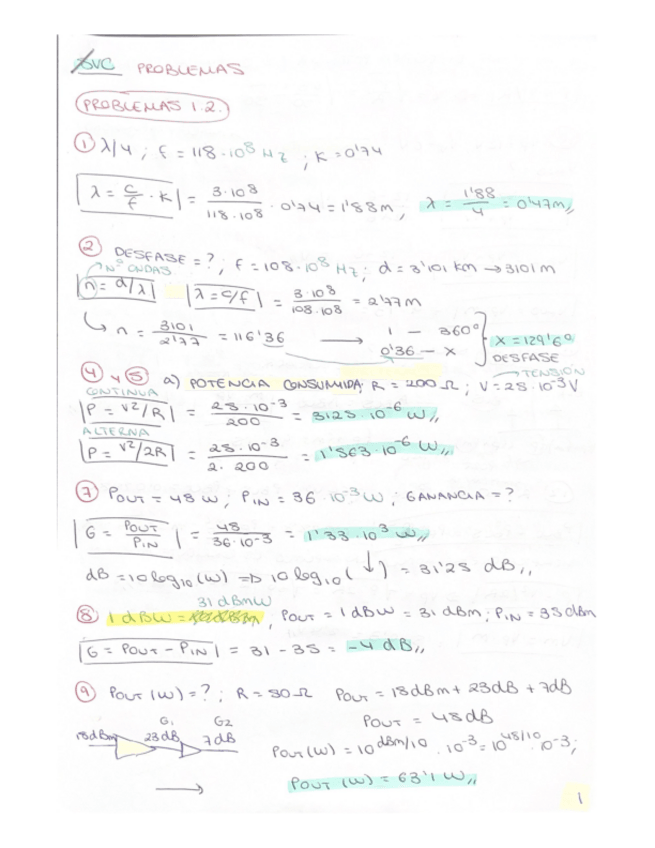 SVC PROBLEMAS
PROBLEMAS 1.2.
① λ/4 ; f = 118·10⁸ Hz ; K = 0'74
λ = c/f · K = 3·10⁸ / 118·10⁸ · 0'74 = 1'88m, λ = 1'88/4 = 0'47m,,
② DESFASE = ? ; f = 108·10⁸ Hz ; d = 3'101 km → 3101 m
Nº ONDAS
n = d/λ λ = c/f = 3·10⁸ / 108·10⁸ = 2'77 m
↳ n = 3101 / 2'77 = 1116'36 → 1 — 360º
0'36 — X X = 129'6º
DESFASE
④ y ⑤ a) POTENCIA CONSUMIDA; R = 200 Ω ; V = 25·10⁻³ V
TENSIÓN
CONTINUA
P = V²/R = 25·10⁻³ / 200 = 3125·10⁻⁶ W,,
ALTERNA
P = V²/2R = 25·10⁻³ / 2·200 = 1'563·10⁻⁶ W,,
⑦ POUT = 48 W ; PIN = 36·10⁻³ W ; GANANCIA = ?
G = POUT / PIN = 48 / 36·10⁻³ = 1'33·10³ W,,
dB = 10 log₁₀ (W) => 10 log₁₀ ( ↓ ) = 31'25 dB,,
31 dBmW
⑧ 1 dBW = ; POUT = 1 dBW = 31 dBm ; PIN = 35 dBm
G = POUT - PIN = 31 - 35 = -4 dB,,
⑨ POUT (W) = ? ; R = 50 Ω POUT = 18dBm + 23dB + 7dB
POUT = 48 dB
G1 G2
18dBm 23dB 7dB
POUT (W) = 10^dBm/10 · 10⁻³ = 10^48/10 · 10⁻³ ;
→ POUT (W) = 63'1 W,,
1